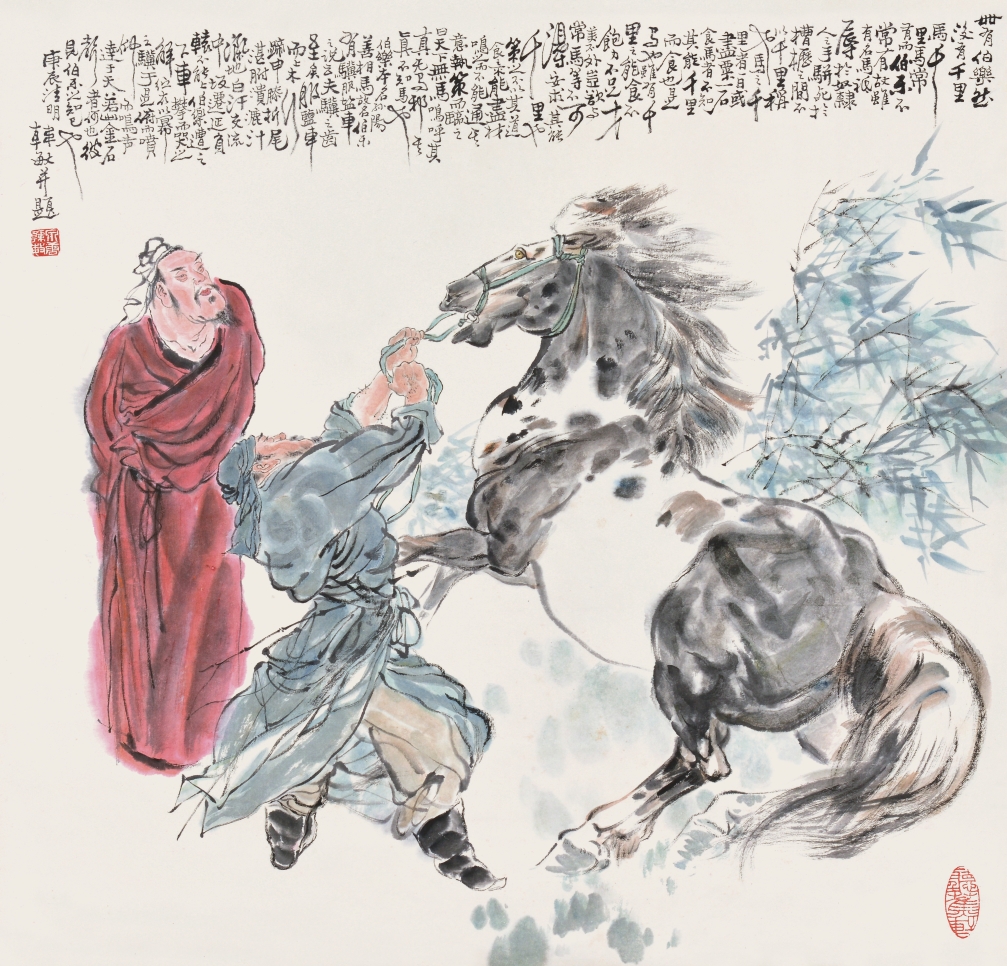 世有伯樂然
後有千里
馬千
里馬常
有而伯乐不
常有故雖
有名馬祇
辱於奴隸
人之手駢死於
槽櫪之間不
以千里稱
也馬之千
里者一食或
盡粟一石
食馬者不知
其能千里
而食也是
馬也雖有千
里之能食不
飽力不足才
美不外見且欲與
常馬等不可
得安求其能
千里也
策之不以其道
食之不能盡材
鳴之而不能通其
意執策而臨之
曰天下無馬嗚呼其
真無馬邪其
真不知馬也
伯樂本名孫陽
善相馬故名伯乐
有驥服鹽車
之説云夫驥之齒
至矣服鹽車
而上太行
蹄申膝折尾
湛胕潰漉汁
灑地白汗交流
中坂遷延負
轅不能上伯樂遭之
下車攀而哭之
解紵衣以冪
之驥于是俯而噴
仰而鳴声
達于天若出金石
声者何也彼
見伯乐之知己也
庚辰清明
韓敏并題